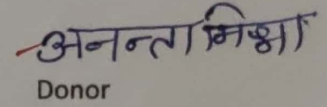 अनन्ता मिश्रा
Donor